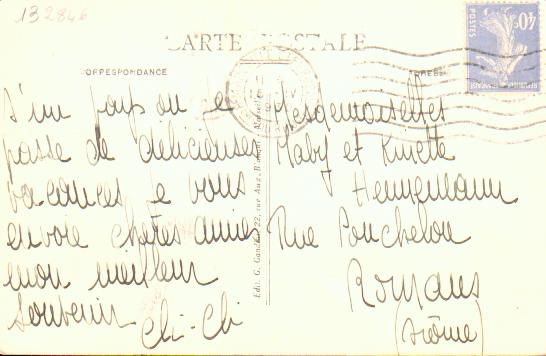 132846
CARTE POSTALE
CORRESPONDANCE
ADRESSE
POSTES
40c
D'un pays où je
passe de délicieuses
vacances je vous
envoie chères amies
mon meilleur
souvenir Cli-Cli
Edit. G. Gandini, 22, rue Aug. Blanqui, Marseille
Mesdemoiselles
Maby et Ginette
Hennemann
Rue Ponchelon
Romans
(Drôme)